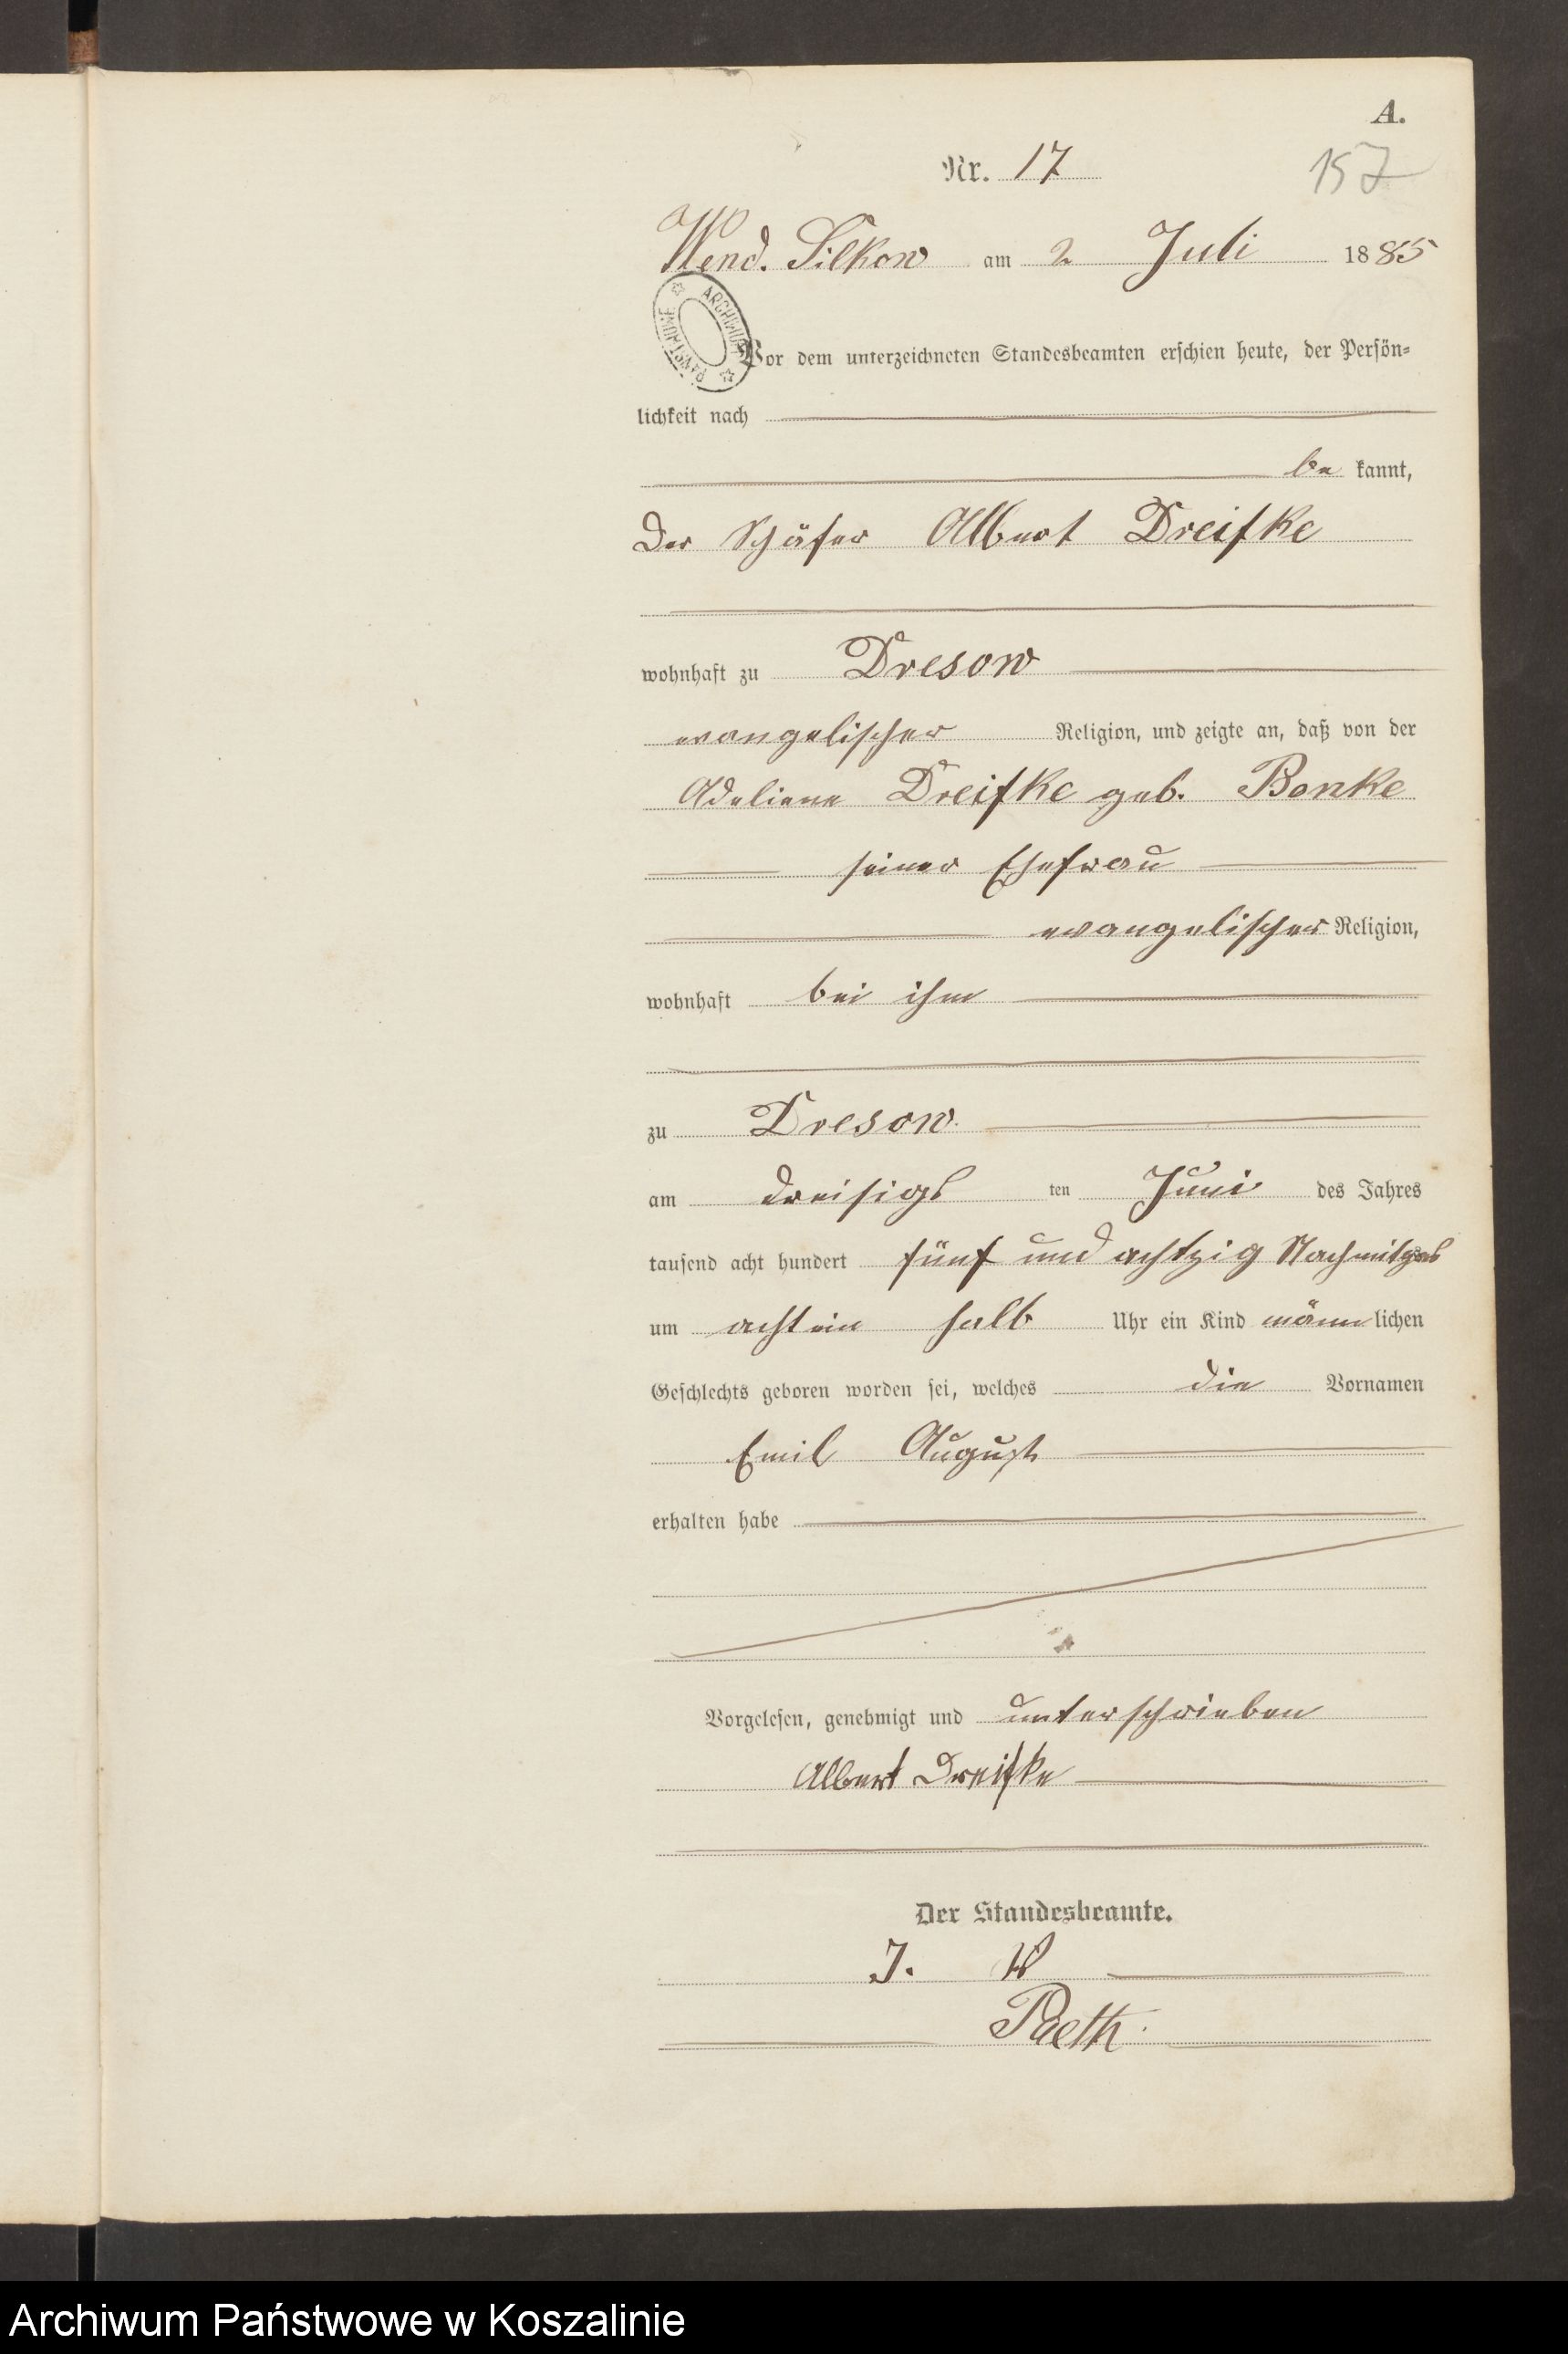 A.
Nr. 17
157
Wend. Silkow am 2 Juli 1885
ARCHIWUM PAŃSTWOWE
Vor dem unterzeichneten Standesbeamten erschien heute, der Persön=
lichkeit nach
be kannt,
der Schäfer Albert Dreifke
wohnhaft zu Dresow
evangelischer Religion, und zeigte an, daß von der
Adeliene Dreifke geb. Bonke
seiner Ehefrau
evangelischer Religion,
wohnhaft bei ihm
zu Dresow.
am dreisigs ten Juni des Jahres
tausend acht hundert fünf und achtzig Nachmittags
um achtein halb Uhr ein Kind männ lichen
Geschlechts geboren worden sei, welches die Vornamen
Emil August
erhalten habe
Vorgelesen, genehmigt und unterschrieben
Albert Dreifke
Der Standesbeamte.
J. V
Paeth.
Archiwum Państwowe w Koszalinie